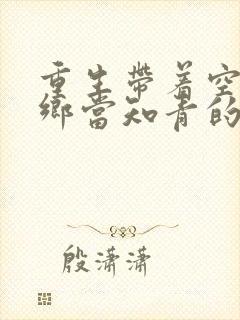 重生带着空
乡当知青的
殷潇潇